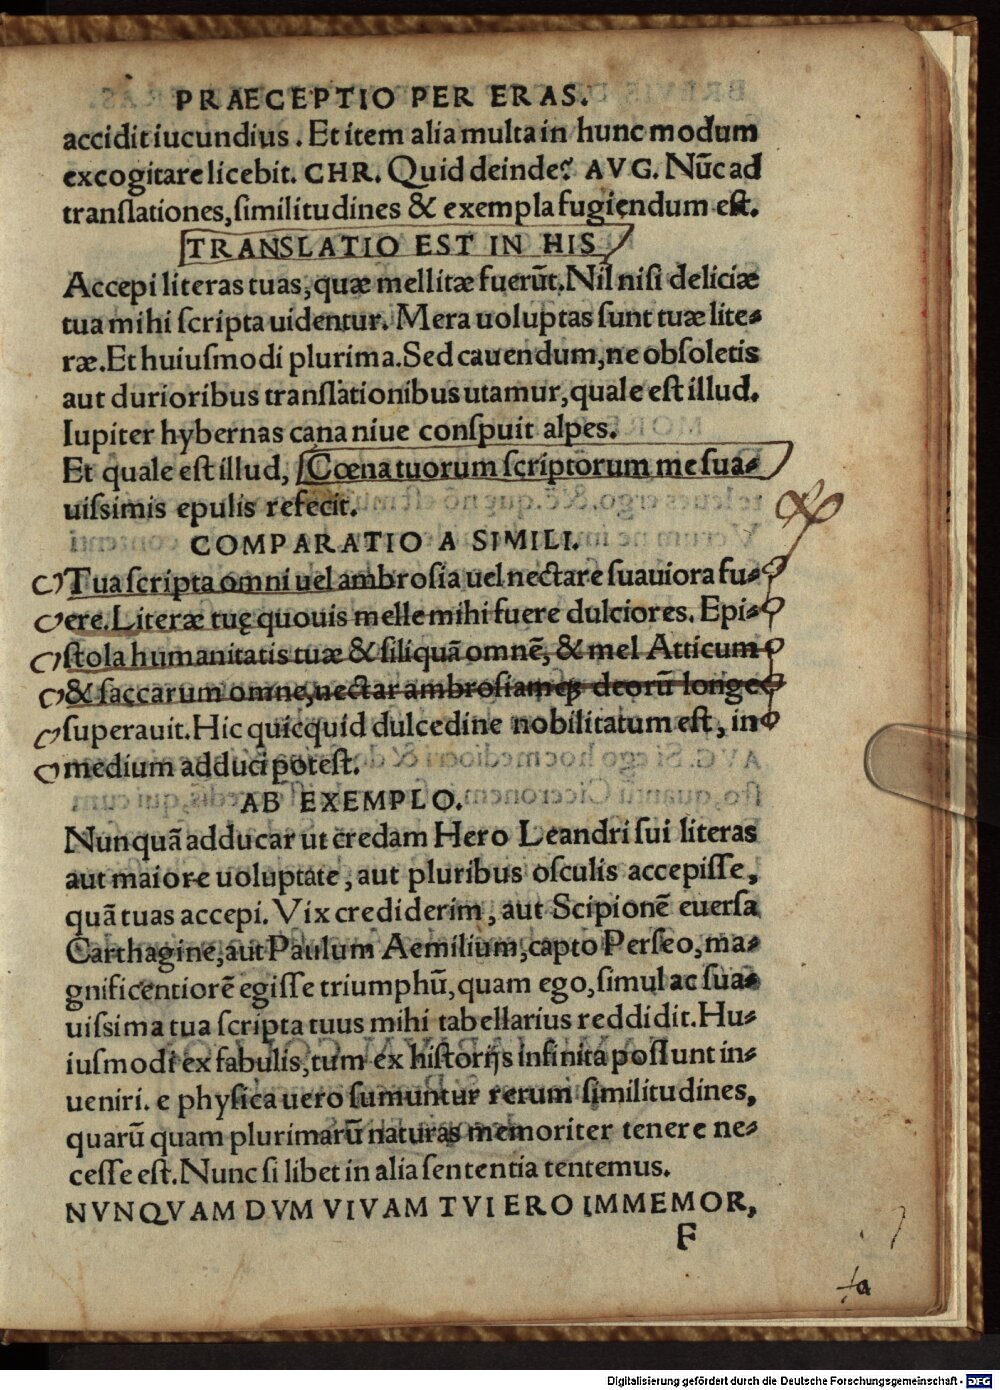 PRAECEPTIO PER ERAS.
accidit iucundius. Et item alia multa in hunc modum
excogitare licebit. CHR. Quid deinde? AVG. Nūc ad
tranſlationes, ſimilitudines & exempla fugiendum eſt.
TRANSLATIO EST IN HIS
Accepi literas tuas, quæ mellitæ fuerūt. Nil niſi deliciæ
tua mihi ſcripta uidentur. Mera uoluptas ſunt tuæ lite-
ræ. Et huiuſmodi plurima. Sed cauendum, ne obſoletis
aut durioribus tranſlationibus utamur, quale eſt illud.
Iupiter hybernas cana niue conſpuit alpes.
Et quale eſt illud, Cœna tuorum ſcriptorum me ſua-
uiſſimis epulis refecit.
COMPARATIO A SIMILI.
Tua ſcripta omni uel ambroſia uel nectare ſuauiora fu-
ere. Literæ tuę quouis melle mihi fuere dulciores. Epi-
ſtola humanitatis tuæ & ſiliquā omnē, & mel Atticum
& ſaccarum omne, nectar ambroſiamqꝫ deorū longe
ſuperauit. Hic quicquid dulcedine nobilitatum eſt, in
medium adduci poteſt.
AB EXEMPLO.
Nunquā adducar ut credam Hero Leandri ſui literas
aut maiore uoluptate, aut pluribus oſculis accepiſſe,
quā tuas accepi. Vix crediderim, aut Scipionē euerſa
Carthagine, aut Paulum Aemilium, capto Perſeo, ma-
gnificentiorē egiſſe triumphū, quam ego, ſimul ac ſua-
uiſſima tua ſcripta tuus mihi tabellarius reddidit. Hu-
iuſmodi ex fabulis, tum ex hiſtorijs infinita poſſunt in-
ueniri. e phyſica uero ſumuntur rerum ſimilitudines,
quarū quam plurimarū naturas memoriter tenere ne-
ceſſe eſt. Nunc ſi libet in alia ſententia tentemus.
NVNQVAM DVM VIVAM TVI ERO IMMEMOR,
F
Digitalisierung gefördert durch die Deutsche Forschungsgemeinschaft - DFG